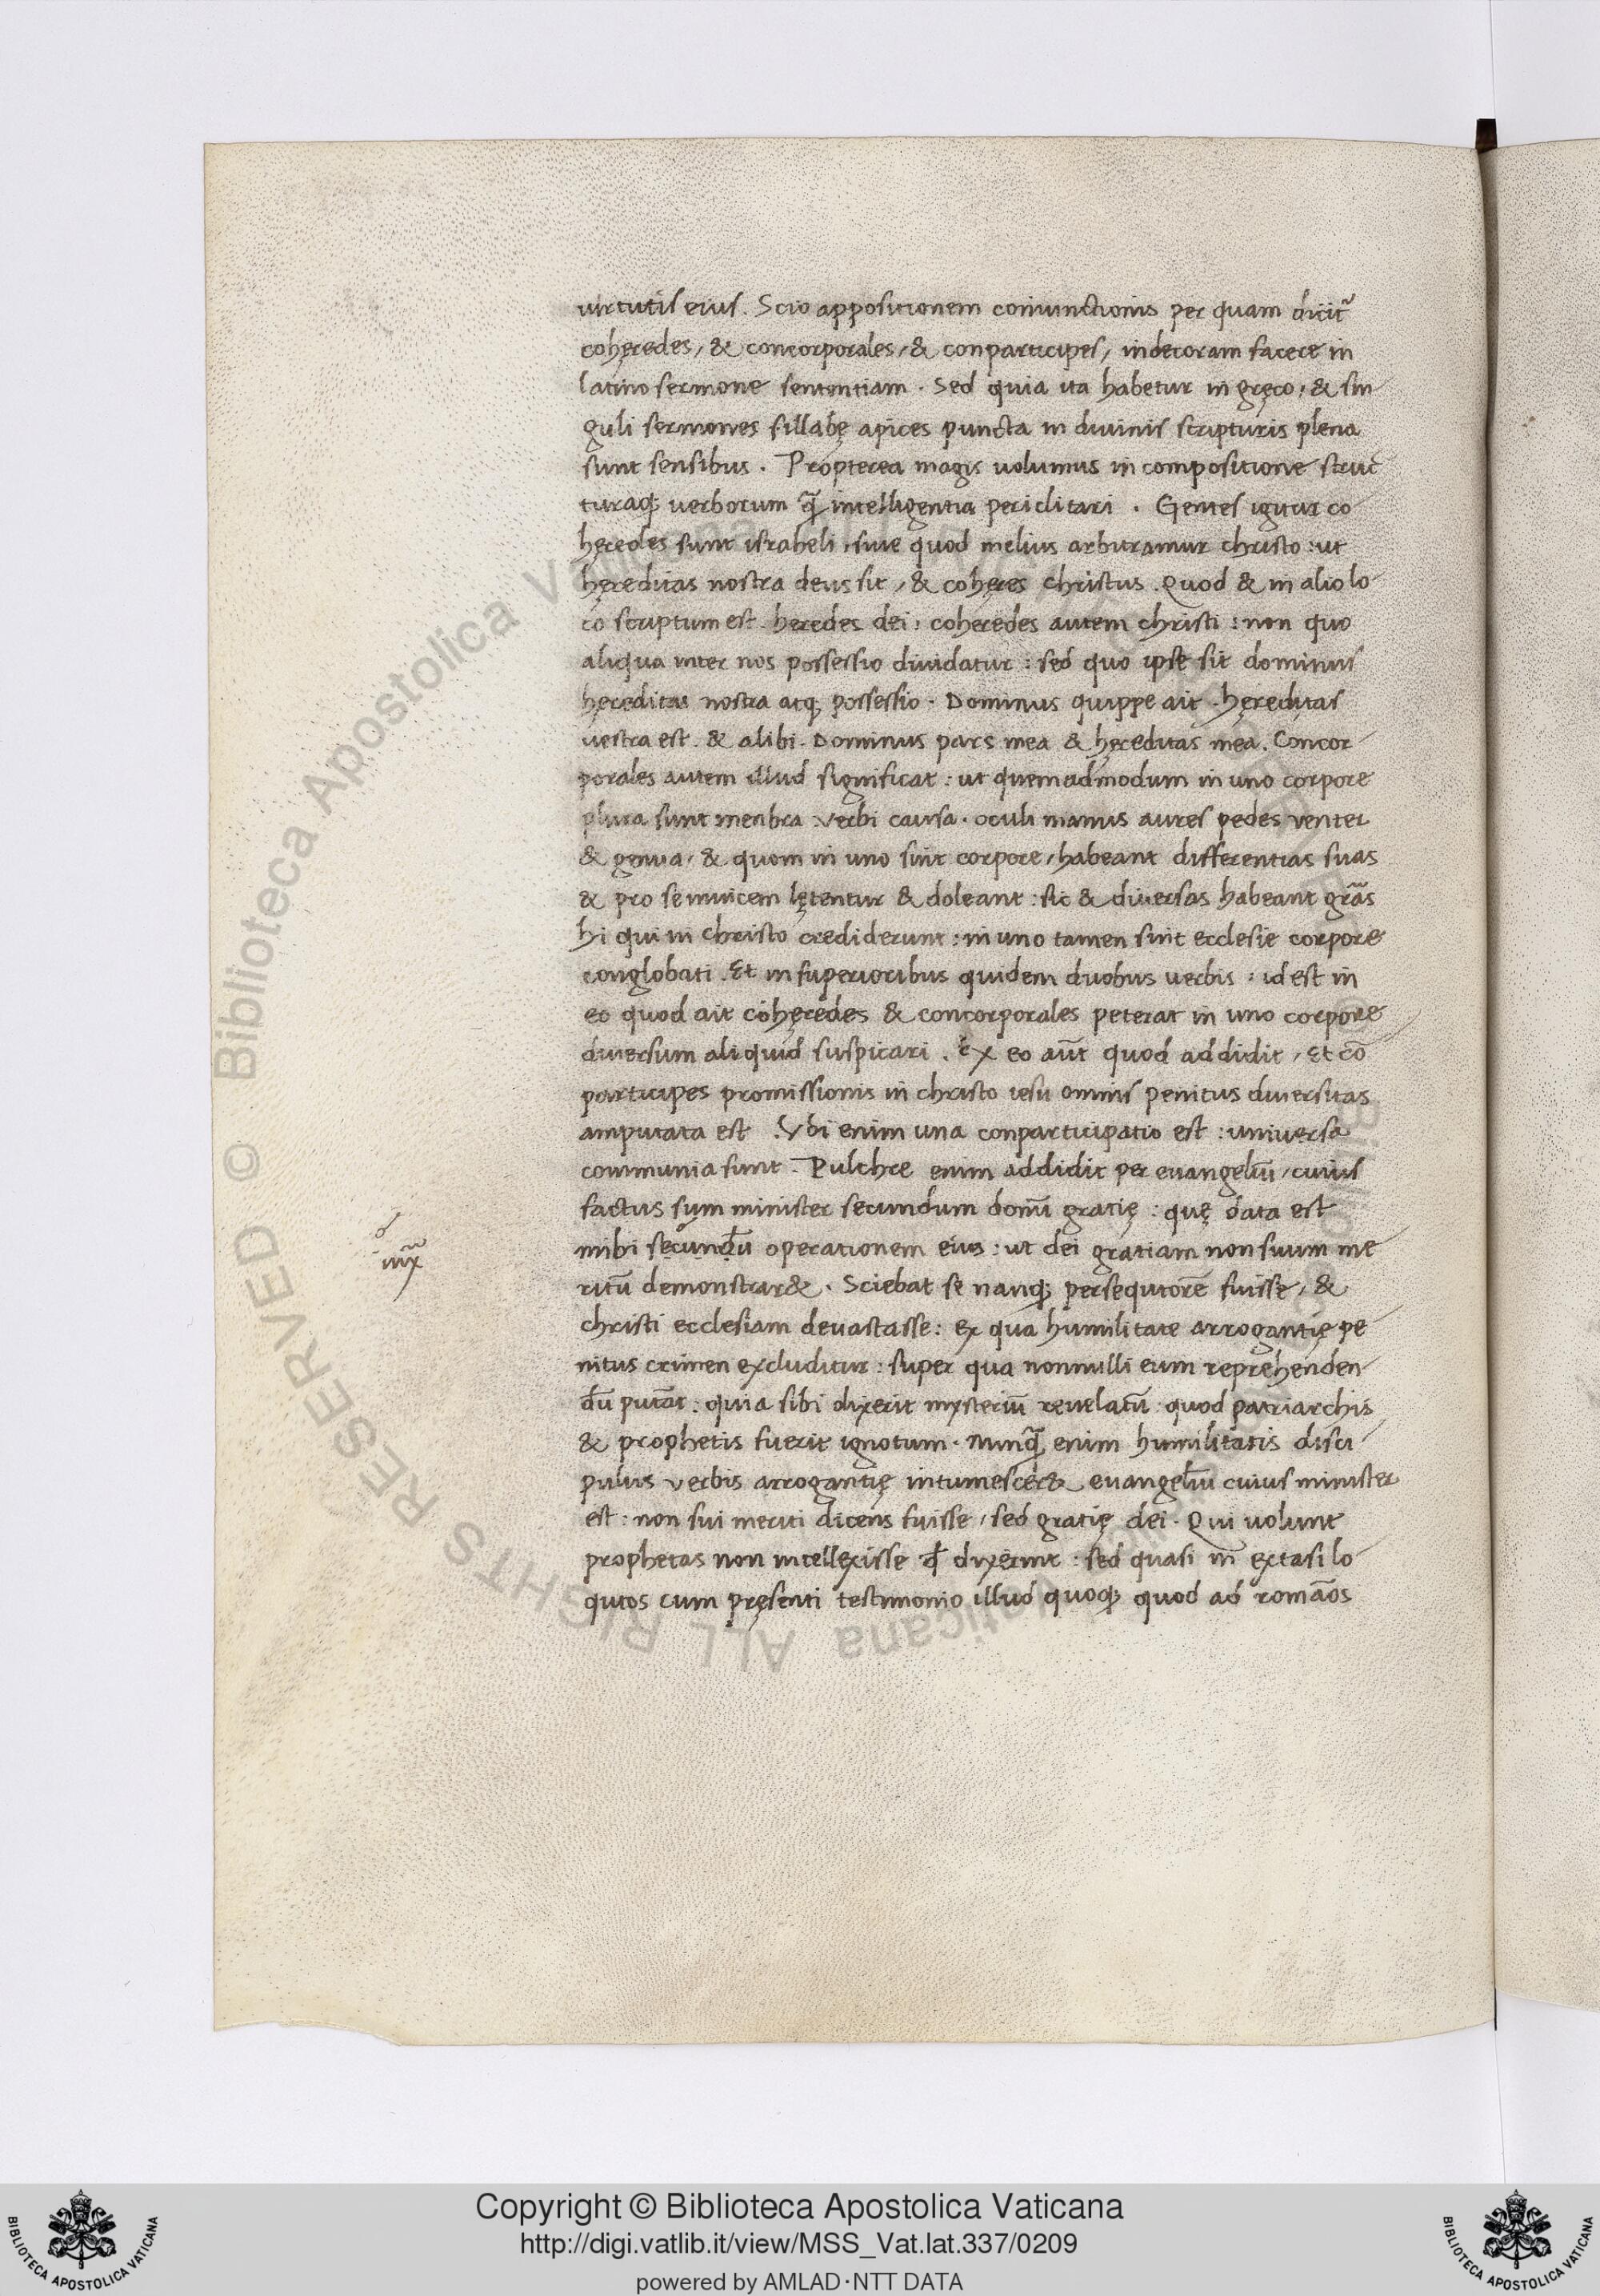 uirtutis eius. Scio appositionem coniunctionis per quam dicit᷑
cohęredes, & concorporales, & conparticipes, indecoram facere in
latino sermone sententiam. Sed quia ita habetur in gręco, & sin
guli sermones sillabę apices puncta in diuinis scripturis plena
sunt sensibus. Propterea magis uolumus in compositione struc
turaq; verborum q̃ intelligentia periclitari. Gentes igitur co
hęredes sunt israheli, siue quod melius arbitramur christo: ut
hęreditas nostra deus sit, & cohęres christus. Quod & in alio lo
co scriptum est. heredes dei, coheredes autem christi: non quo
aliqua inter nos possessio diuidatur: sed quo ipse sit dominus
hęreditas nostra atq; possessio. Dominus quippe ait. hęreditas
uestra est. & alibi. Dominus pars mea & hęreditas mea. Concor
porales autem illud significat: ut quemadmodum in uno corpore
plura sunt menbra: verbi causa. oculi manus aures pedes venter
& genua, & quom in uno sint corpore, habeant differentias suas
& pro se inuicem lętentur & doleant: sic & diuersas habeant gr̃as
hi qui in christo crediderunt: in uno tamen sint ecclesie corpore
conglobati. Et in superioribus quidem duobus verbis: id est in
eo quod ait cohęredes & concorporales peterat in uno corpore
diuersum aliquid suspicari. Ex eo aũt quod addidit, Et cō
participes promissionis in christo iesu omnis penitus diuersitas
amputata est. Vbi enim una conparticipatio est: universa
communia sunt. Pulchre enim addidit per euangeliū, cuius
factus sum minister secundum donū gratię: quę data est
mihi secundū operationem eius: ut dei gratiam non suum me
ritū demonstrar&. Sciebat se nanq; persequtorē fuisse, &
christi ecclesiam deuastasse: ex qua humilitate arrogantię pe
nitus crimen excluditur: super qua nonnulli eum reprehenden
dū putāt: quia sibi dixerit mysteriū reuelatū quod patriarchis
& prophetis fuerit ignotum. Nunq̃ enim humilitatis disci
pulus verbis arrogantię intumescer& euangeliū cuius minister
est: non sui meriti dicens fuisse, sed gratię dei. Qui uolunt
prophetas non intellexisse qđ dixerint: sed quasi in extasi lo
qutos cum pręsenti testimonio illud quoq; quod ad romāos
Copyright © Biblioteca Apostolica Vaticana
http://digi.vatlib.it/view/MSS_Vat.lat.337/0209
powered by AMLAD·NTT DATA
BIBLIOTECA APOSTOLICA VATICANA
BIBLIOTECA APOSTOLICA VATICANA